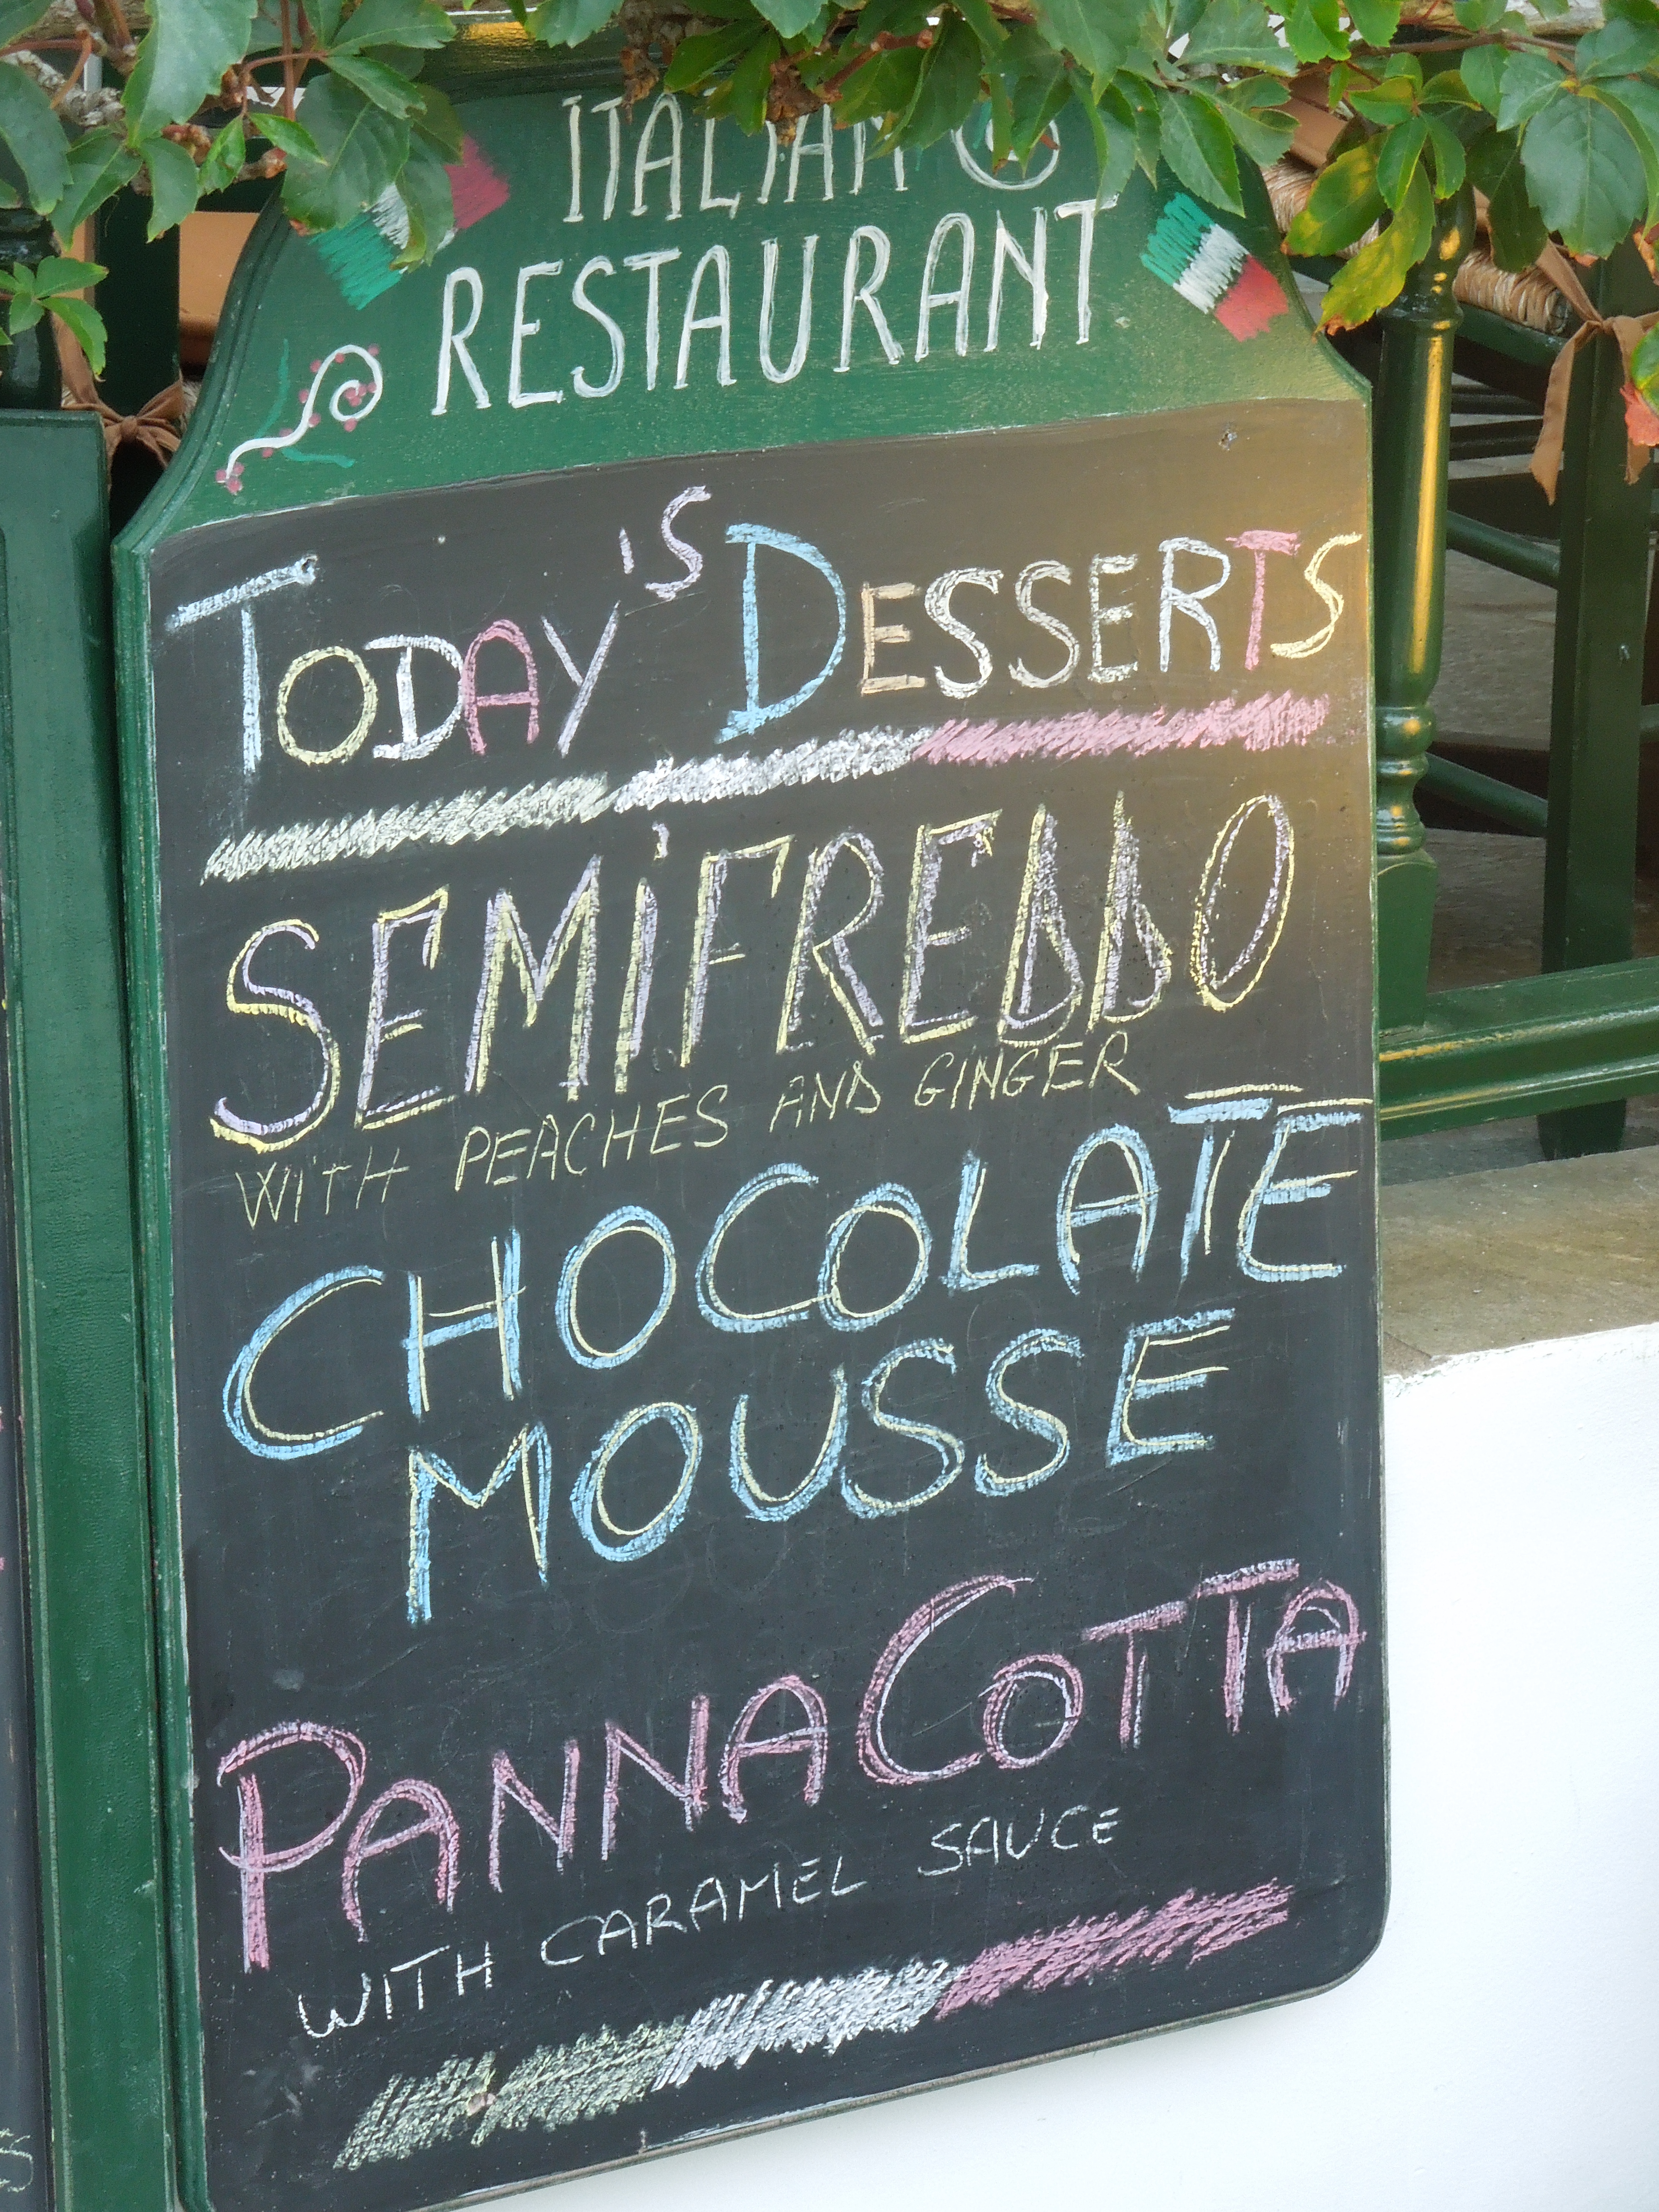 ITALIAN
RESTAURANT
TODAY'S DESSERTS
SEMIFREDDO
WITH PEACHES AND GINGER
CHOCOLATE
MOUSSE
PANNA COTTA
WITH CARAMEL SAUCE